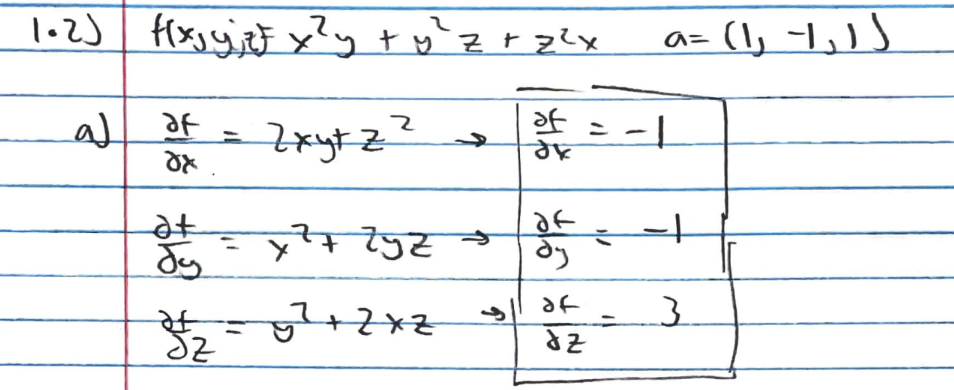 1.2) f(x,y,z)= x²y + y²z + z²x a= (1, -1, 1)
a) ∂f/∂x = 2xy+z² → ∂f/∂x = -1
∂f/∂y = x²+ 2yz → ∂f/∂y = -1
∂f/∂z = y²+2xz → ∂f/∂z = 3